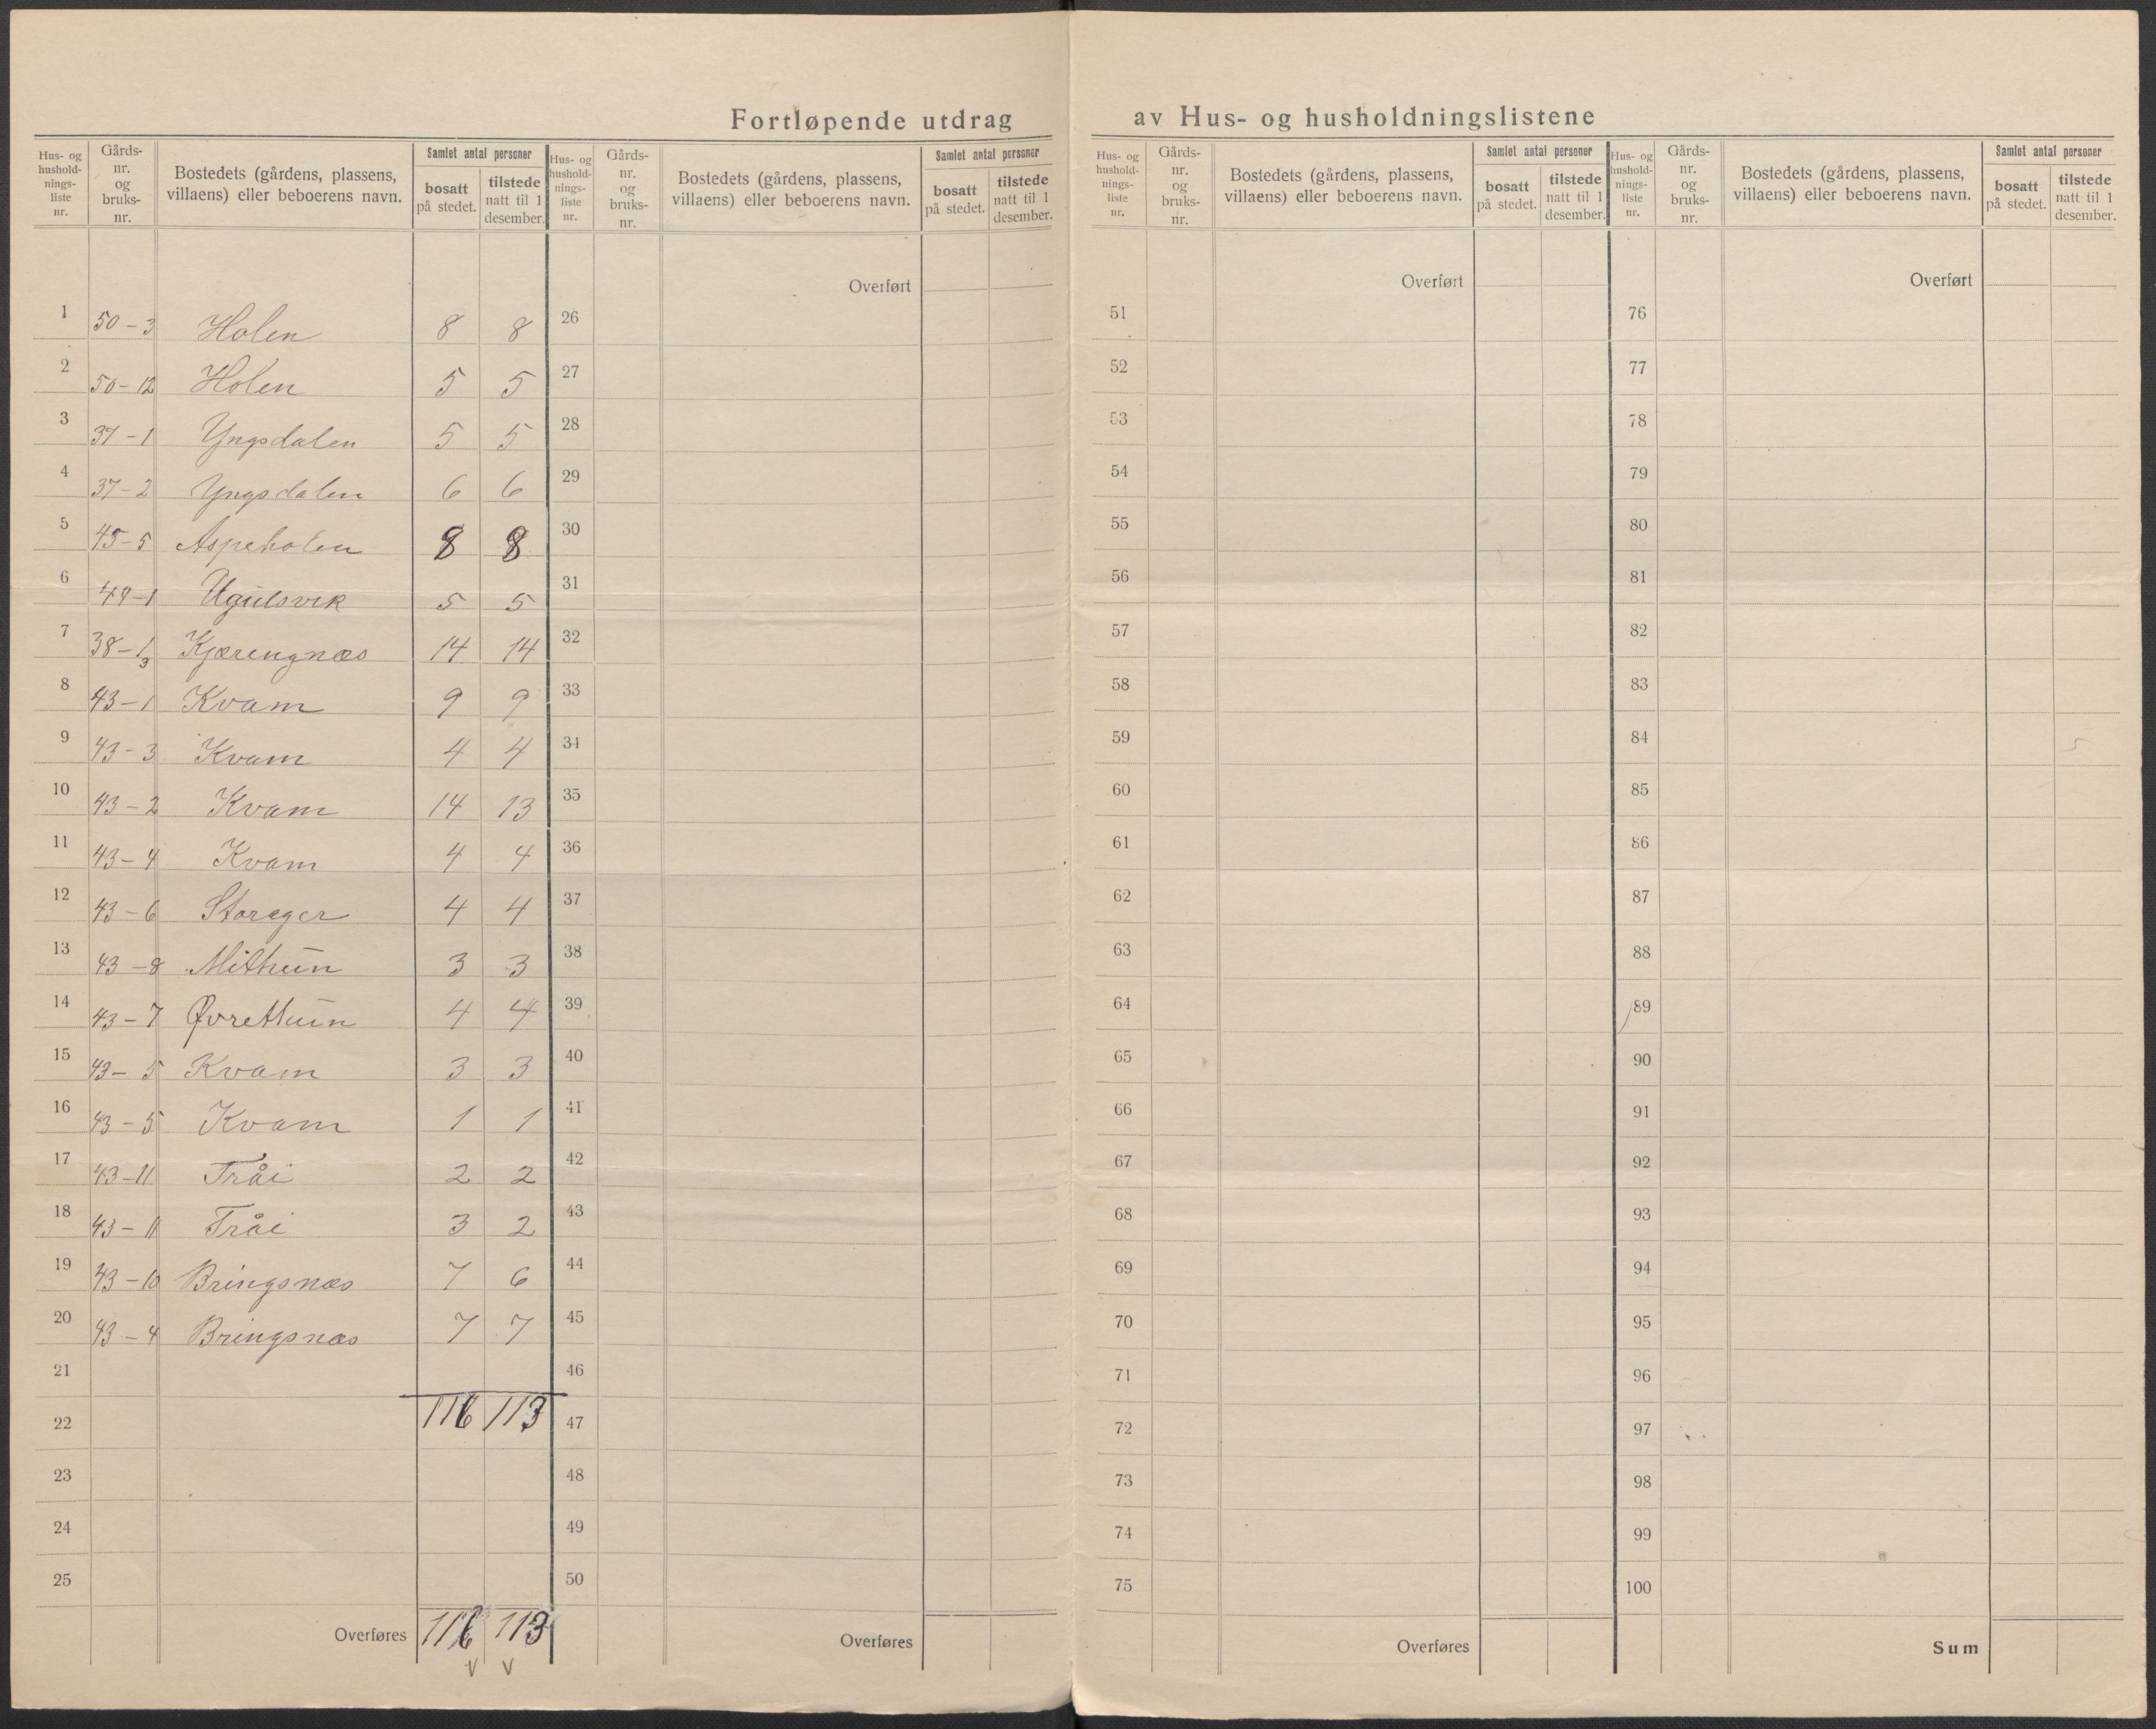 Fortløpende utdrag av Hus- og husholdningslistene
Hus- og hushold-nings-liste nr. | Gårds-nr. og bruks-nr. | Bostedets (gårdens, plassens, villaens) eller beboerens navn. | Samlet antal personer | bosatt på stedet. | tilstede natt til 1 desember.
Hus- og hushold-nings-liste nr. | Gårds-nr. og bruks-nr. | Bostedets (gårdens, plassens, villaens) eller beboerens navn. | Samlet antal personer | bosatt på stedet. | tilstede natt til 1 desember.
Hus- og hushold-nings-liste nr. | Gårds-nr. og bruks-nr. | Bostedets (gårdens, plassens, villaens) eller beboerens navn. | Samlet antal personer | bosatt på stedet. | tilstede natt til 1 desember.
Hus- og hushold-nings-liste nr. | Gårds-nr. og bruks-nr. | Bostedets (gårdens, plassens, villaens) eller beboerens navn. | Samlet antal personer | bosatt på stedet. | tilstede natt til 1 desember.
1 50-3 Holen 8 8
2 50-12 Holen 5 5
3 37-1 Yngsdalen 5 5
4 37-2 Yngsdalen 6 6
5 45-5 Aspeholen 8 8
6 49-1 Ugulsvik 5 5
7 38-1,3 Kjærengnæs 14 14
8 43-1 Kvam 9 9
9 43-3 Kvam 4 4
10 43-2 Kvam 14 13
11 43-4 Kvam 4 4
12 43-6 Storeger 4 4
13 43-8 Mithun 3 3
14 43-7 Øvrethun 4 4
15 43-5 Kvam 3 3
16 43-5 Kvam 1 1
17 43-11 Tråi 2 2
18 43-11 Tråi 3 2
19 43-10 Bringsnæs 7 6
20 43-4 Bringsnæs 7 7
21
22 116 113
23
24
25
Overføres 116 113
V V
Overført
26
27
28
29
30
31
32
33
34
35
36
37
38
39
40
41
42
43
44
45
46
47
48
49
50
Overføres
Overført
51
52
53
54
55
56
57
58
59
60
61
62
63
64
65
66
67
68
69
70
71
72
73
74
75
Overføres
Overført
76
77
78
79
80
81
82
83
84 5
85
86
87
88
89
90
91
92
93
94
95
96
97
98
99
100
Sum